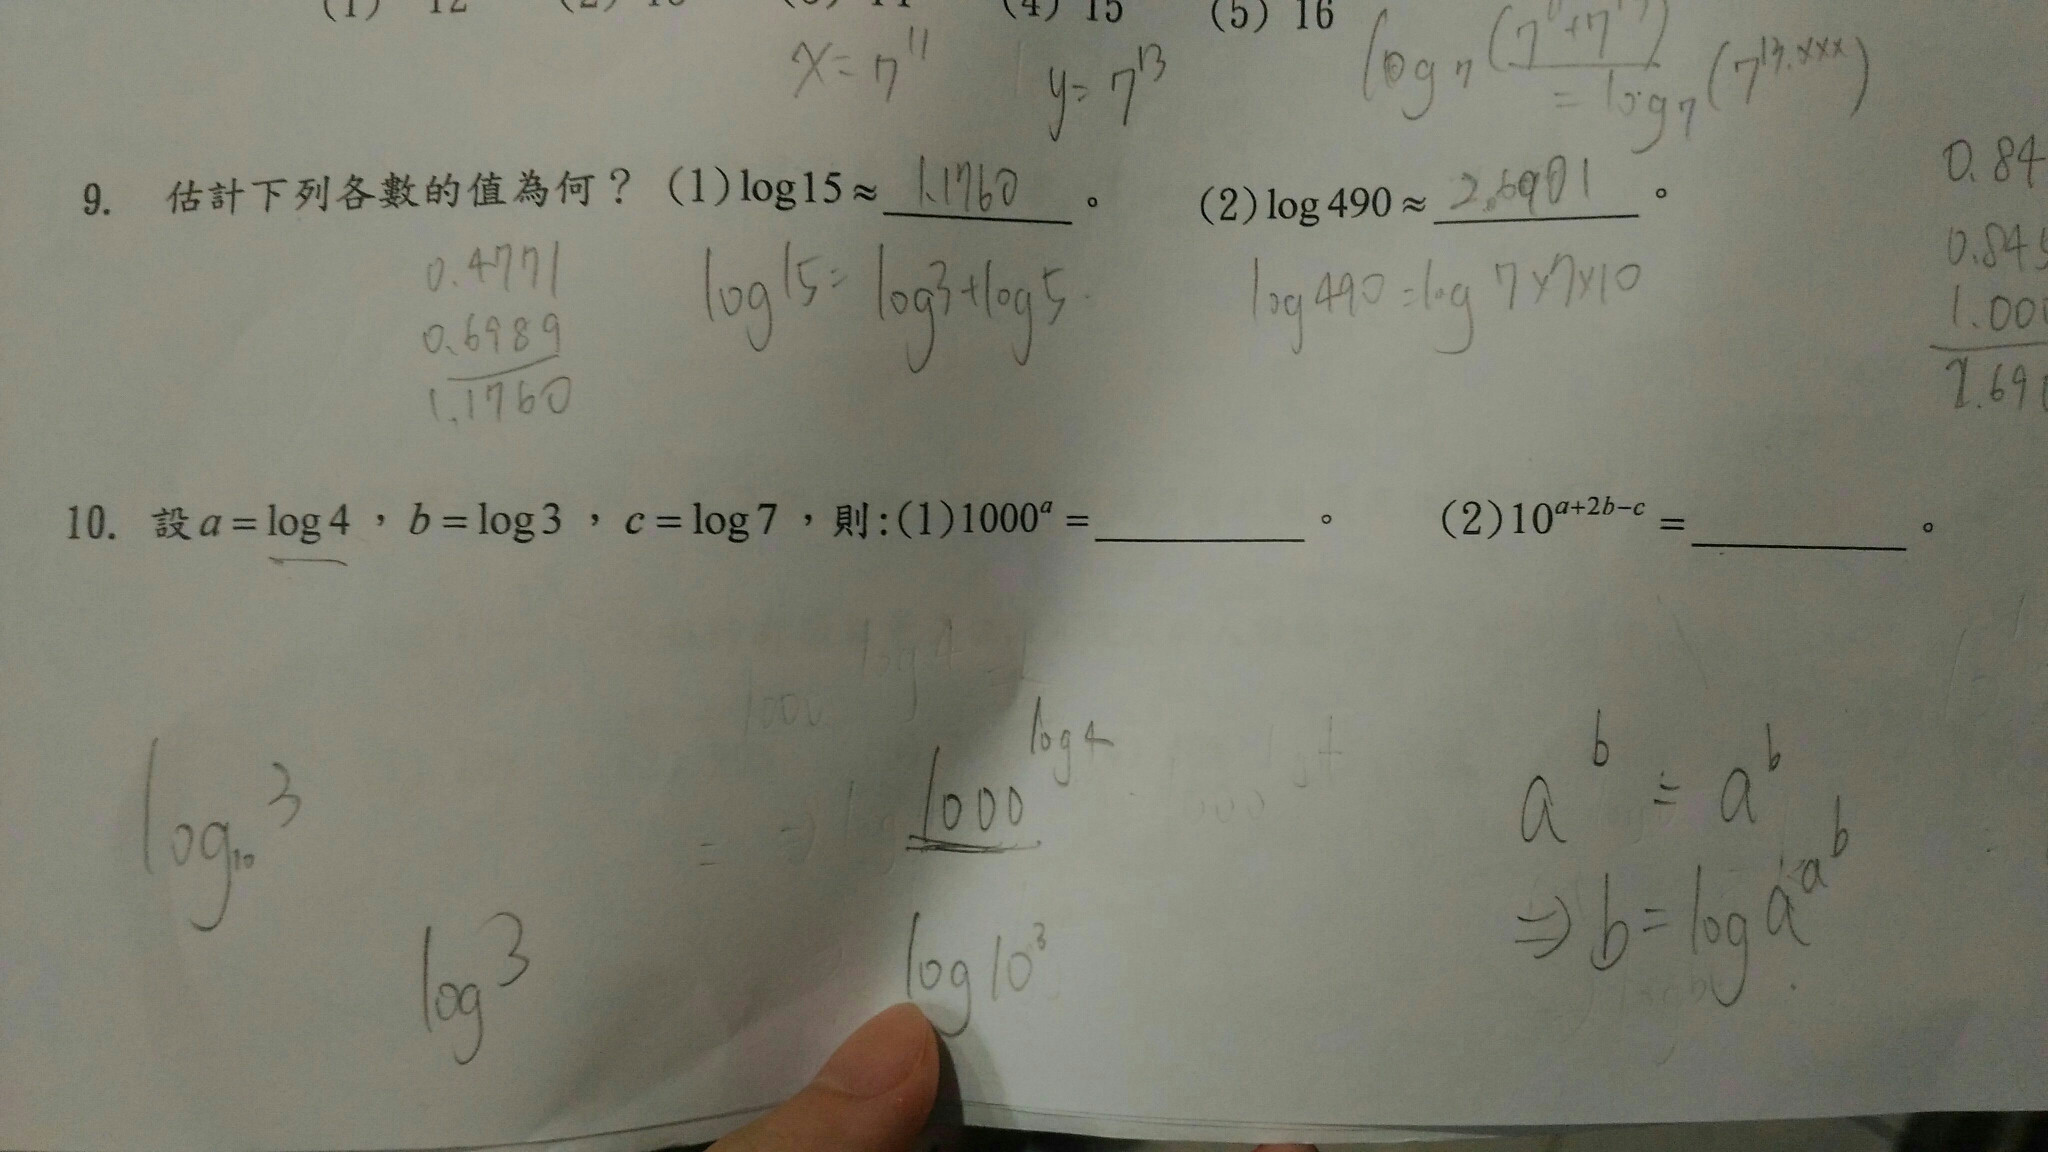 (1) 12 (2) 13 (3) 14 (4) 15 (5) 16
x = 7^11
y = 7^13
log7 (7^11+7^13)
= log7 (7^13.xxx)
9. 估計下列各數的值為何？ (1) log15 ≈ 1.1760 。 (2) log 490 ≈ 2.6901 。
0.4771
0.6989
1.1760
log15 = log3+log5
log490 = log 7×7×10
0.84
0.845
1.000
2.690
10. 設 a = log4 ， b = log3 ， c = log7 ，則:(1)1000^a = ________ 。 (2)10^(a+2b−c) = ________ 。
1000 log4
1000^log4
a^b = a^b
⇒ b = log a a^b
log10 3
log 3
log10^3